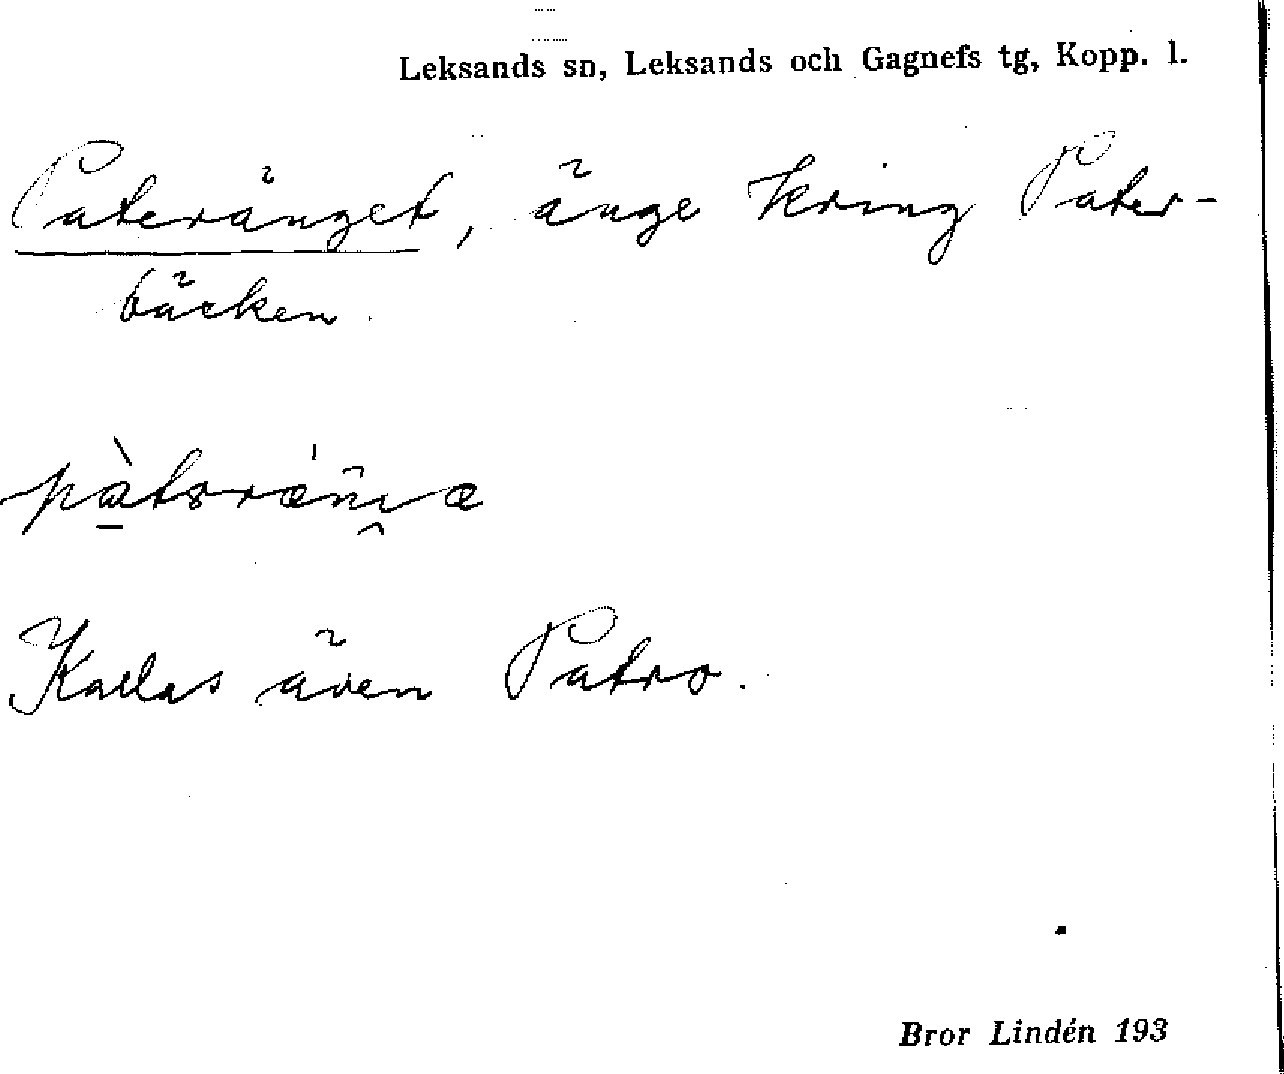 Leksands sn, Leksands och Gagnefs tg, Kopp. l.
Pateränget, änge kring Pater-
bäcken.
Kallas även Patro.
Bror Lindén 193